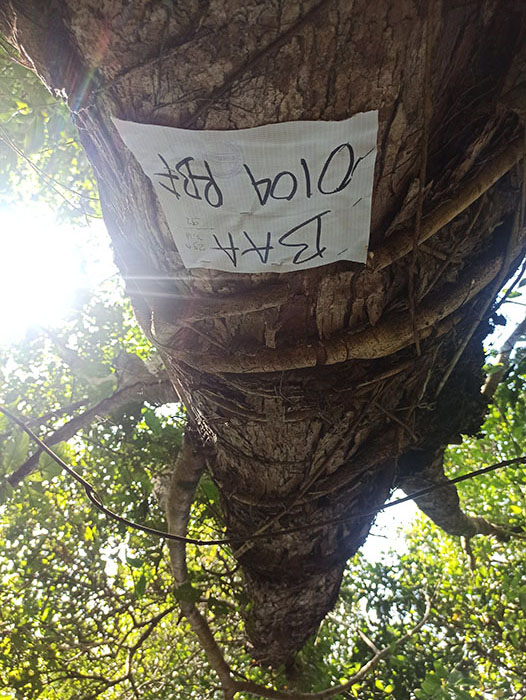 BAA
0109 RBF